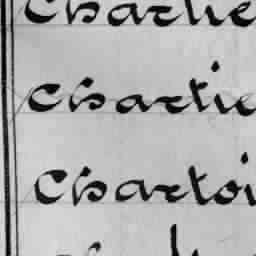 Charlie
Chartie
Chartoi